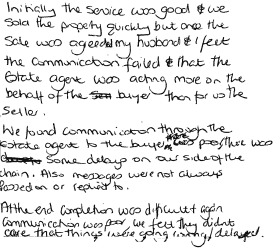 Initially the service was good & we
sold the property quickly but once the
sale was agreed my husband & I feel
the communication failed & that the
Estate agent was acting more on the
behalf of the buyer than for us the
seller.
We found communication through the
estate agent to the buyer was poor, there was
some delays on our side of the
chain. Also messages were not always
passed on or replied to.
At the end completion was difficult again
communication was poor, we feel they didnt
care that things were going wrong / delayed.